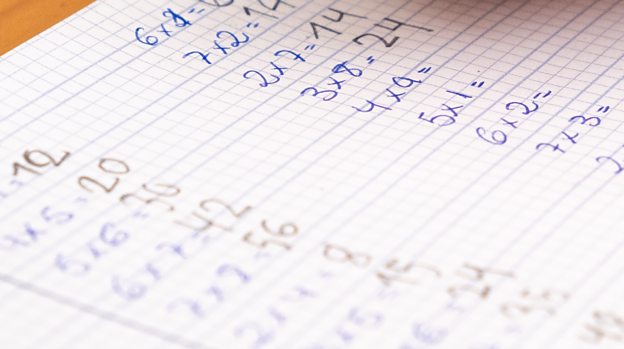 7x2=14
2x7=14
3x8=24
4x9=
5x1=
6x2=
7x3=
12
4x5=20
5x6=30
6x7=42
=56
2x4=8
x5=15
24
35